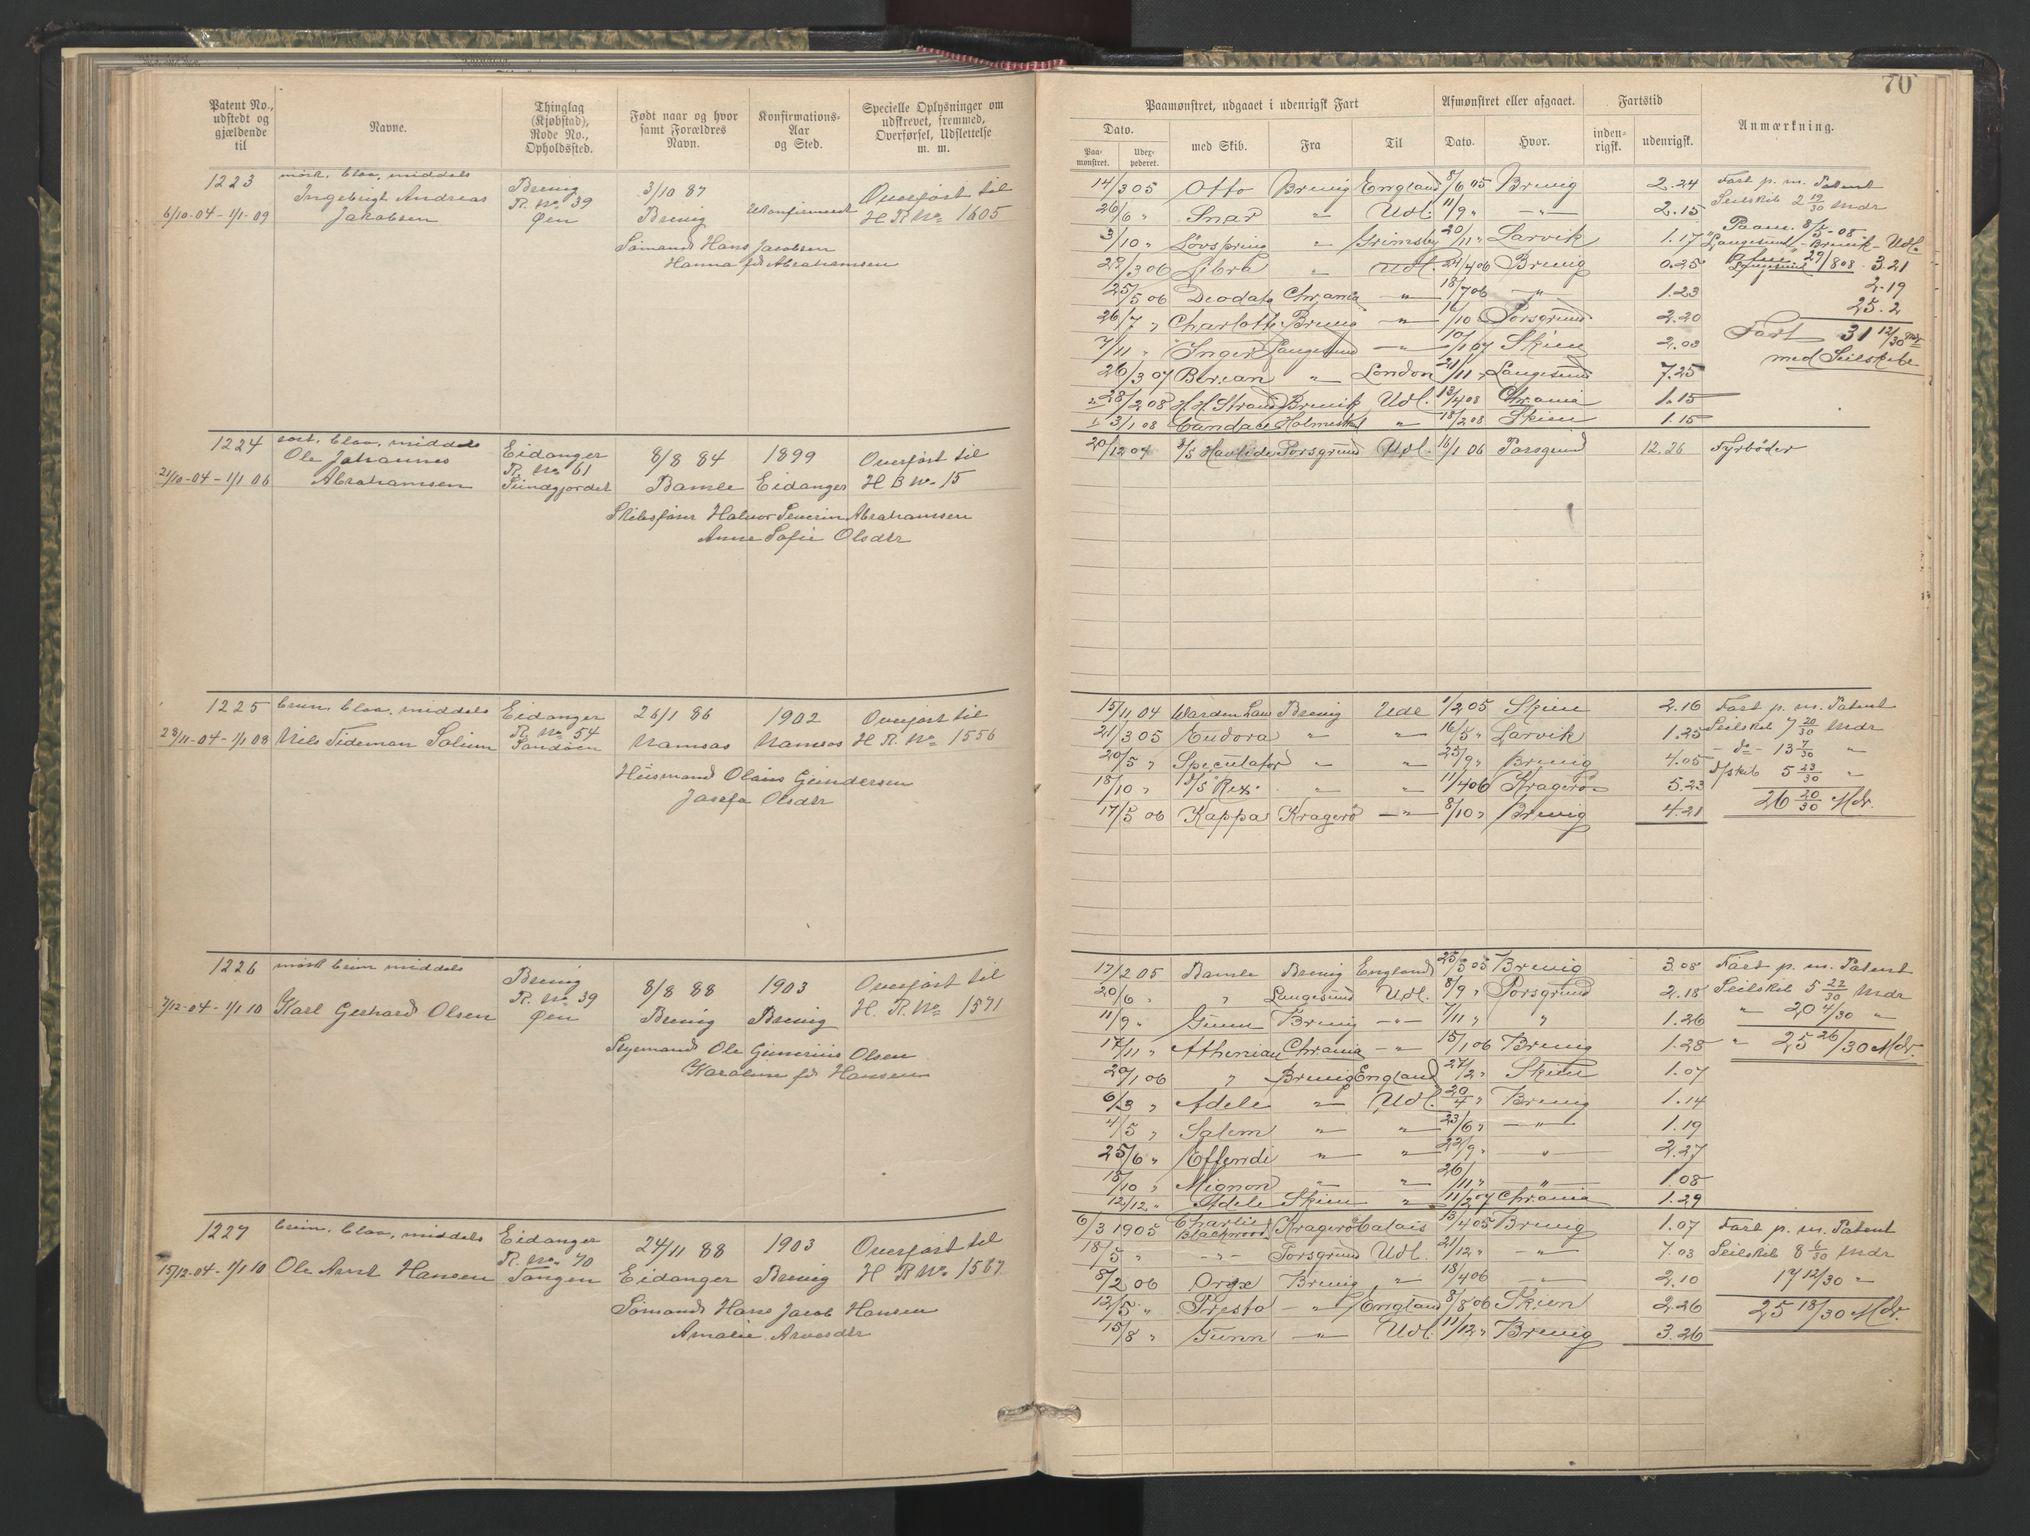 70
Patent No., udstedt og gjældende til
Navne.
Thinglag (Kjøbstad), Rode No., Opholdssted.
Født naar og hvor samt Forældres Navn.
Konfirmations-Aar og Sted.
Specielle Oplysninger om udskrevet, fremmed, Overførsel, Udslettelse m. m.
Paamønstret, udgaaet i udenrigsk Fart
Afmønstret eller afgaaet.
Fartstid
Anmærkning.
Dato.
Paa-mønstret.
Udex-pederet.
med Skib.
Fra
Til
Dato.
Hvor.
inden-rigsk.
udenrigsk.
1223 mørk, blaa, middels
Ingebrigt Andreas Brevig 3/10 87 Overført til
6/10-04-1/1-09 Jakobsen R. No 39 Øen Brevig Ukonfirmeret H R No 1605
Sømand Hans Jacobsen
Hanna fd Abrahamsen
14/3 05 Otto Brevig England 8/6 05 Brevig 2.24 Fart p. m. Patent
26/6 " Snar " Udl. 11/9 " 2.15 Seilskib 2 19/30 Mdr
3/10 " Løvspring " Grimsby 20/11 " Larvik 1.17 Langesund - Brevik - Udl.
22/3 06 Libra " Udl. 21/4 06 Brevig 0.25 Langesund 29/8 08 3.21
25/5 06 Deodata Chrania " 18/7 06 " 1.23 2.19
26/7 " Charlotte Brevig " 16/10 Porsgrund 2.20 25.2
7/11 " Inger Langesund " 10/1 07 Skien 2.03 Fart 31 12/30 Mdr
26/3 07 Berean " London 21/11 " Langesund 7.25 med Seilskibe
28/2 08 H. H. Strand Brevik Udl. 13/4 08 Chrania 1.15
3/1 08 Candace Holmestrand " 18/2 08 Skien 1.15
1224 sort, blaa, middels
Ole Johannes Eidanger 8/8 84 1899 Overført til
21/10-04-1/1 06 Abrahamsen R. No 61 Sundgjordet Bamle Eidanger H B No 15
Skibsfører Halvor Severin Abrahamsen
Anne Sofie Olsdtr
20/12 04 S/S Havlide Porsgrund Udl. 16/1 06 Porsgrund 12.26 Fyrbøder
1225 brun, blaa, middels Eidanger 26/1 86 1902 Overført til
28/11-04-1/1 08 Nils Tideman Solum R. No 54 Sandøen Namsos Namsos H R. No 1556
Husmand Olaus Gundersen
Josefa Olsdtr
15/11 04 Warden Law Brevig Udl 1/2 05 Skien 2.16 Fart p. m. Patent
21/3 05 Eudora " " 16/5 " Larvik 1.25 Seilskib 7 20/30 Mdr
20/5 " Speculator " " 25/9 " Brevig 4.05 - do - 13 7/30 "
18/10 " S/S Rex " " 11/4 06 Kragerø 5.23 D/skib 5 23/30 "
17/5 06 Kappa Kragerø " 8/10 " Brevig 4.21 26 20/30 Mdr.
1226 mørk brun middels Brevig 8/8 88 1903 Overført til
7/12-04-1/1 10 Karl Gerhard Olsen R. No 39 Øen Brevig Brevig H. R. No 1571
Styrmand Ole Gunerius Olsen
Karoline fd Hansen
17/2 05 Bamle Brevig England 25/5 05 Brevig 3.08 Fart p. m. Patent
20/6 " " Langesund Udl. 8/9 " Porsgrund 2.18 Seilskib 5 22/30 Mdr
11/9 " Gunn Brevig " 7/11 " " 1.26 " 20 4/30 "
17/11 " Athenian Chrania " 15/1 06 Brevig 1.28 " 25 26/30 Mdr.
20/1 06 " Brevig England 27/2 " Skien 1.07
6/3 " Adele " Udl. 20/4 " Brevig 1.14
4/5 " Salem " " 23/6 " " 1.19
25/6 " Effendi " " 22/9 " " 2.27
18/10 " Mignon " " 26/11 " " 1.08
12/12 " Adele Skien " 11/2 07 Chrania 1.29
1227 brun, blaa, middels Eidanger 24/11 88 1903 Overført til
15/12-04-1/1 10 Ole Arnt Hansen R. No 70 Tangen Eidanger Brevig H R No 1587
Sømand Hans Jacob Hansen
Amalie Arvesdtr
6/3 1905 Charlie Blackwood Kragerø Calais 13/4 05 Brevig 1.07 Fart p. m. Patent
18/5 " " Porsgrund Udl. 21/12 " " 7.03 Seilskib 8 6/30 Mdr
8/2 06 Oryx Brevig " 18/4 06 " 2.10 17 12/30 "
12/5 " Presto " England 8/8 06 Skien 2.26 25 18/30 Mdr.
15/8 " Gunn " Udl. 11/12 " Brevig 3.26